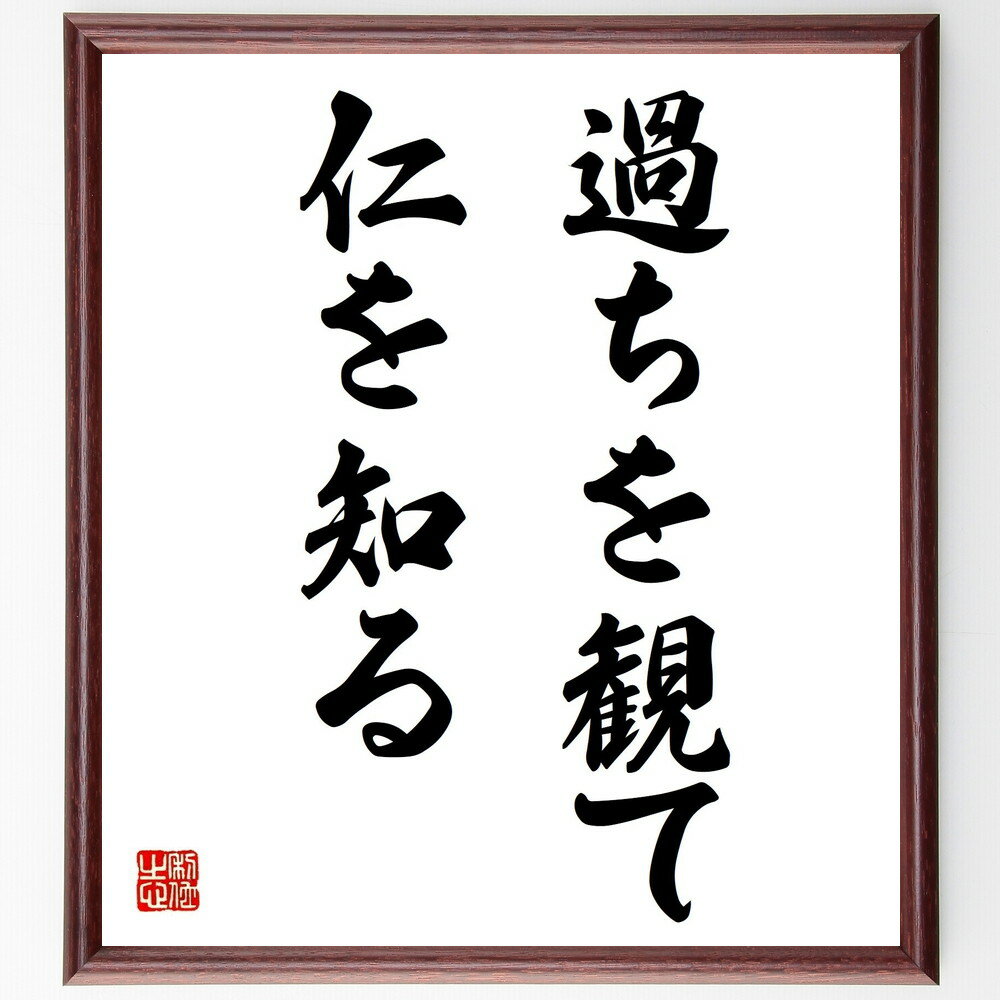 過ちを観て
仁を知る